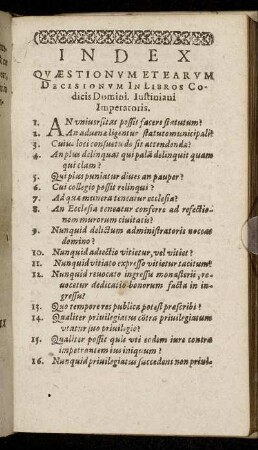 INDEX
QVÆSTIONVM ET EARVM
DECISIONVM IN LIBROS CO-
dicis Domini. Iustiniani
Imperatoris.
1. AN vniuersitas possit facere statutum?
2. An aduena ligentur statuto municipali?
3. Cuius loci consuetudo sit attendenda?
4. An plus delinquat qui palã delinquit quam
qui clam?
5. Qui plus puniatur diues an pauper?
6. Cui collegio possit relinqui?
7. Ad quæ munera teneatur ecclesia?
8. An Ecclesia teneatur conferre ad refectio-
nem murorum ciuitatis?
9. Nunquid delictum administratoris noceat
domino?
10. Nunquid adiectio vitietur, vel vitiet?
11. Nunquid vitiato expresso vitietur tacitum?
12. Nunquid reuocato ingressu monasterij, re-
uocetur dedicatio bonorum facta in in-
gressu?
13. Quo tempore res publica potest præscribi?
14. Qualiter priuilegiatus cõtra priuilegiatum
vtatur suo priuilegio?
15. Qualiter possit quis vti eodem iure contra
impetrantem ius iniquum?
16. Nunquid priuilegiatus succedens non priui-